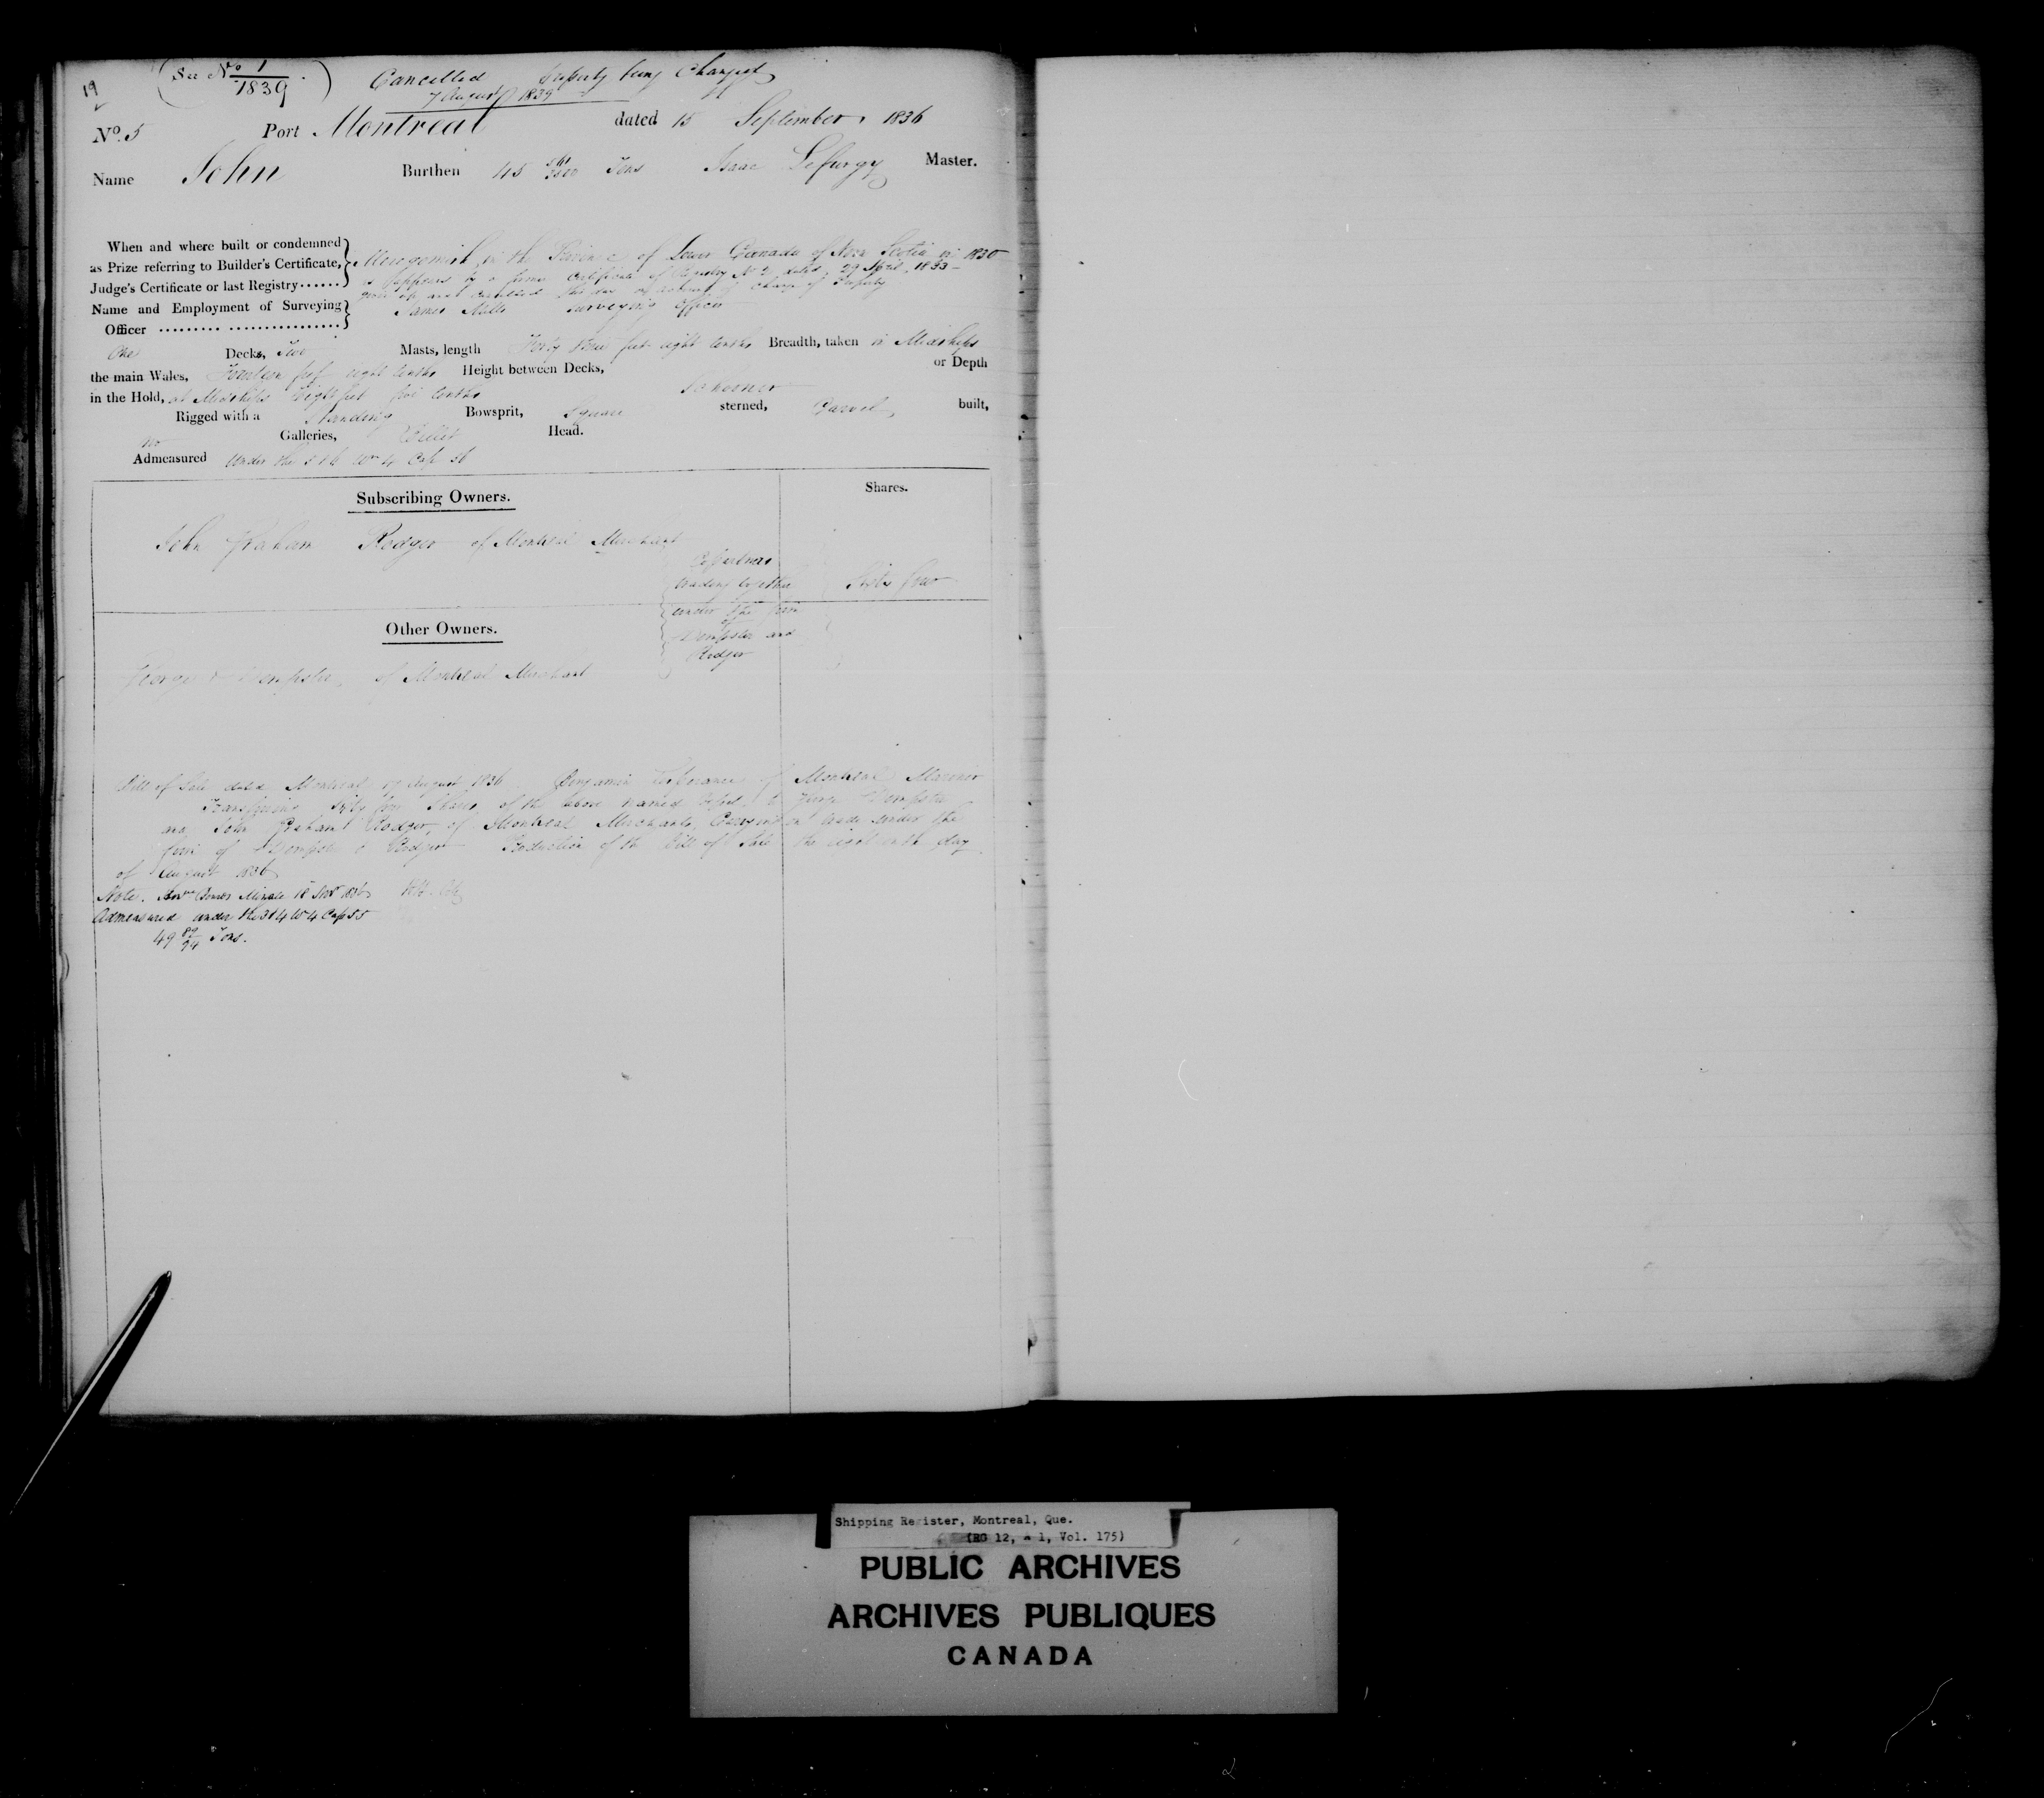 19
(See No 1/1839)
Cancelled Property being Changed
7 August 1839
No. 5 Port Montreal dated 15 September 1836
Name John Burthen 45 Tons Isaac Lefurgy Master.
When and where built or condemned
as Prize referring to Builder's Certificate,
Judge's Certificate or last Registry......
in the Province of Lower Canada of Nova Scotia in 1830
as appears by a former Certificate of Registry No 2 dated 29 April 1833
given up and cancelled this day on account of change of Property
Name and Employment of Surveying
Officer ......... .................
James Mills Surveying Officer
One Decks, Two Masts, length Forty feet eight tenths Breadth, taken in Midships
the main Wales, feet eight tenths Height between Decks, or Depth
in the Hold, at Midships feet tenths Schooner
Rigged with a Standing Bowsprit, Square sterned, Carvel built,
No Galleries, Billet Head.
Admeasured Under the 5 & 6 Wm 4 Cap 56
Subscribing Owners.
Shares.
John Graham Rodger of Montreal Merchant
Copartners
trading together
under the firm
of
Dempster and
Rodger
Sixty four
Other Owners.
George Dempster of Montreal Merchant
Bill of Sale dated Montreal 17 August 1836 Benjamin of Montreal Mariner
Transferring sixty four Shares of the above named Vessel to George Dempster
and John Graham Rodger, of Montreal Merchants, Carrying on trade under the
firm of Dempster & Rodger Production of the Bill of Sale the eighteenth day
of August 1836
Note.
Admeasured under the 3 & 4 W 4 Cap 55
49 89/94 Tons.
Shipping Register, Montreal, Que.
(RG 12, A 1, Vol. 175)
PUBLIC ARCHIVES
ARCHIVES PUBLIQUES
CANADA